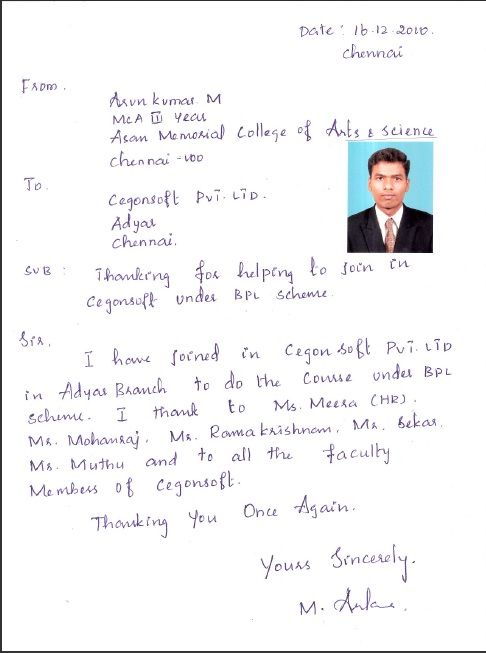 Date : 16.12.2010.
Chennai
From.
Arun kumar. M
MCA III Year
Asan Memorial College of Arts & science
Chennai - 100
To.
Cegonsoft Pvt. LTD.
Adyar
Chennai.
SUB : Thanking for helping to Join in
Cegonsoft under BPL scheme.
Sir,
I have joined in Cegonsoft Pvt. LTD
in Adyar Branch to do the Course under BPL
scheme. I thank to Ms. Meera (HR).
Mr. Mohanraj, Mr. Ramakrishnan, Mr. Sekar,
Mr. Muthu and to all the faculty
Members of Cegonsoft.
Thanking You Once Again.
Yours Sincerely,
M.